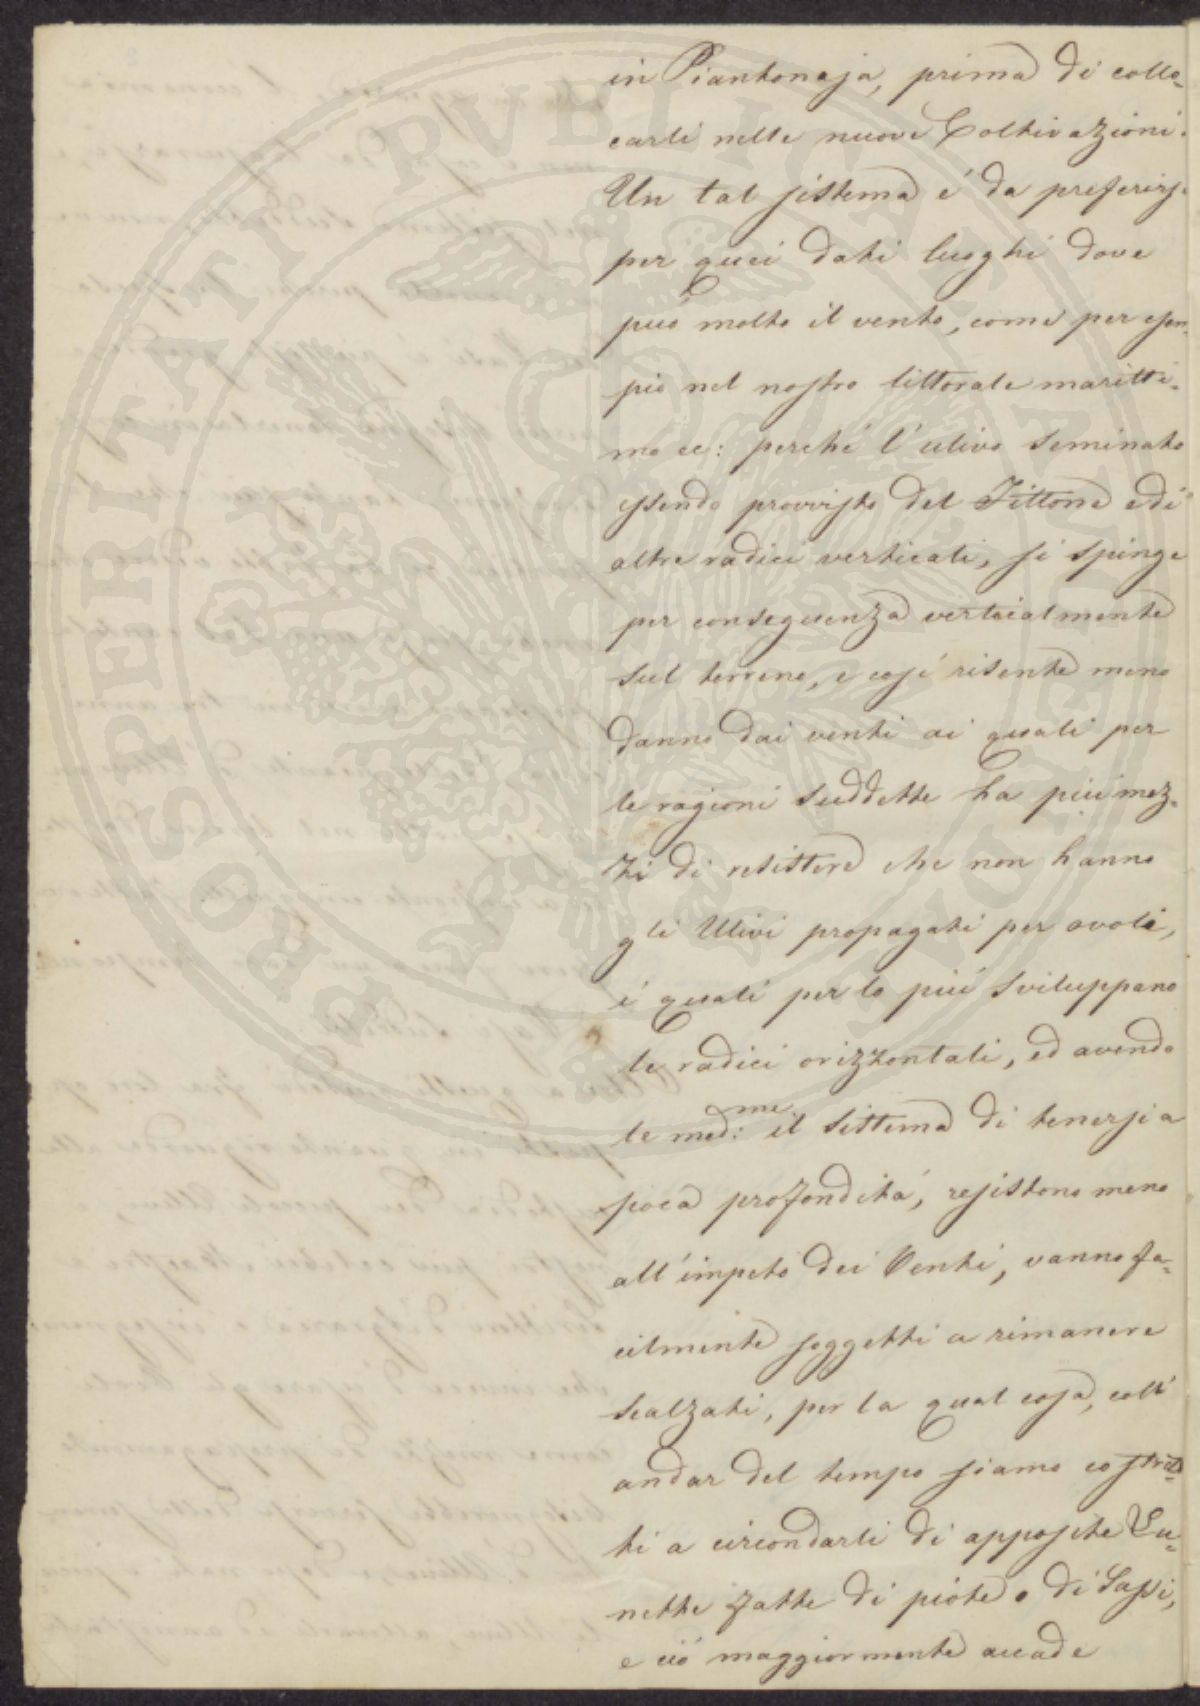 in Piantonaja, prima di collo-
carli nelle nuove Coltivazioni.
Un tal sistema é da preferirsi
per quei dati luoghi dove
puó molto il vento, come per esem-
pio nel nostro littorale maritti-
mo ec: perché l'ulivo seminato
essendo provvisto del Fittone e di
altre radici verticali, si spinge
per conseguenza verticalmente
sul terreno, e cosí risente meno
danno dai venti ai quali per
le ragioni suddette ha piú mez-
zi di resistere che non hanno
gli Ulivi propagati per ovoli,
i quali per lo piú sviluppano
le radici orizzontali, ed avendo
le med:me il sistema di tenersi a
poca profonditá, resistono meno
all'impeto dei Venti, vanno fa-
cilmente soggetti a rimanere
scalzati, per la qual cosa, coll'
andar del tempo siamo costret-
ti a circondarli di apposite Lu-
nette fatte di piote o di Sassi,
e ció maggiormente accade
PROSPERITATI PVBLICAE AVGENDAE